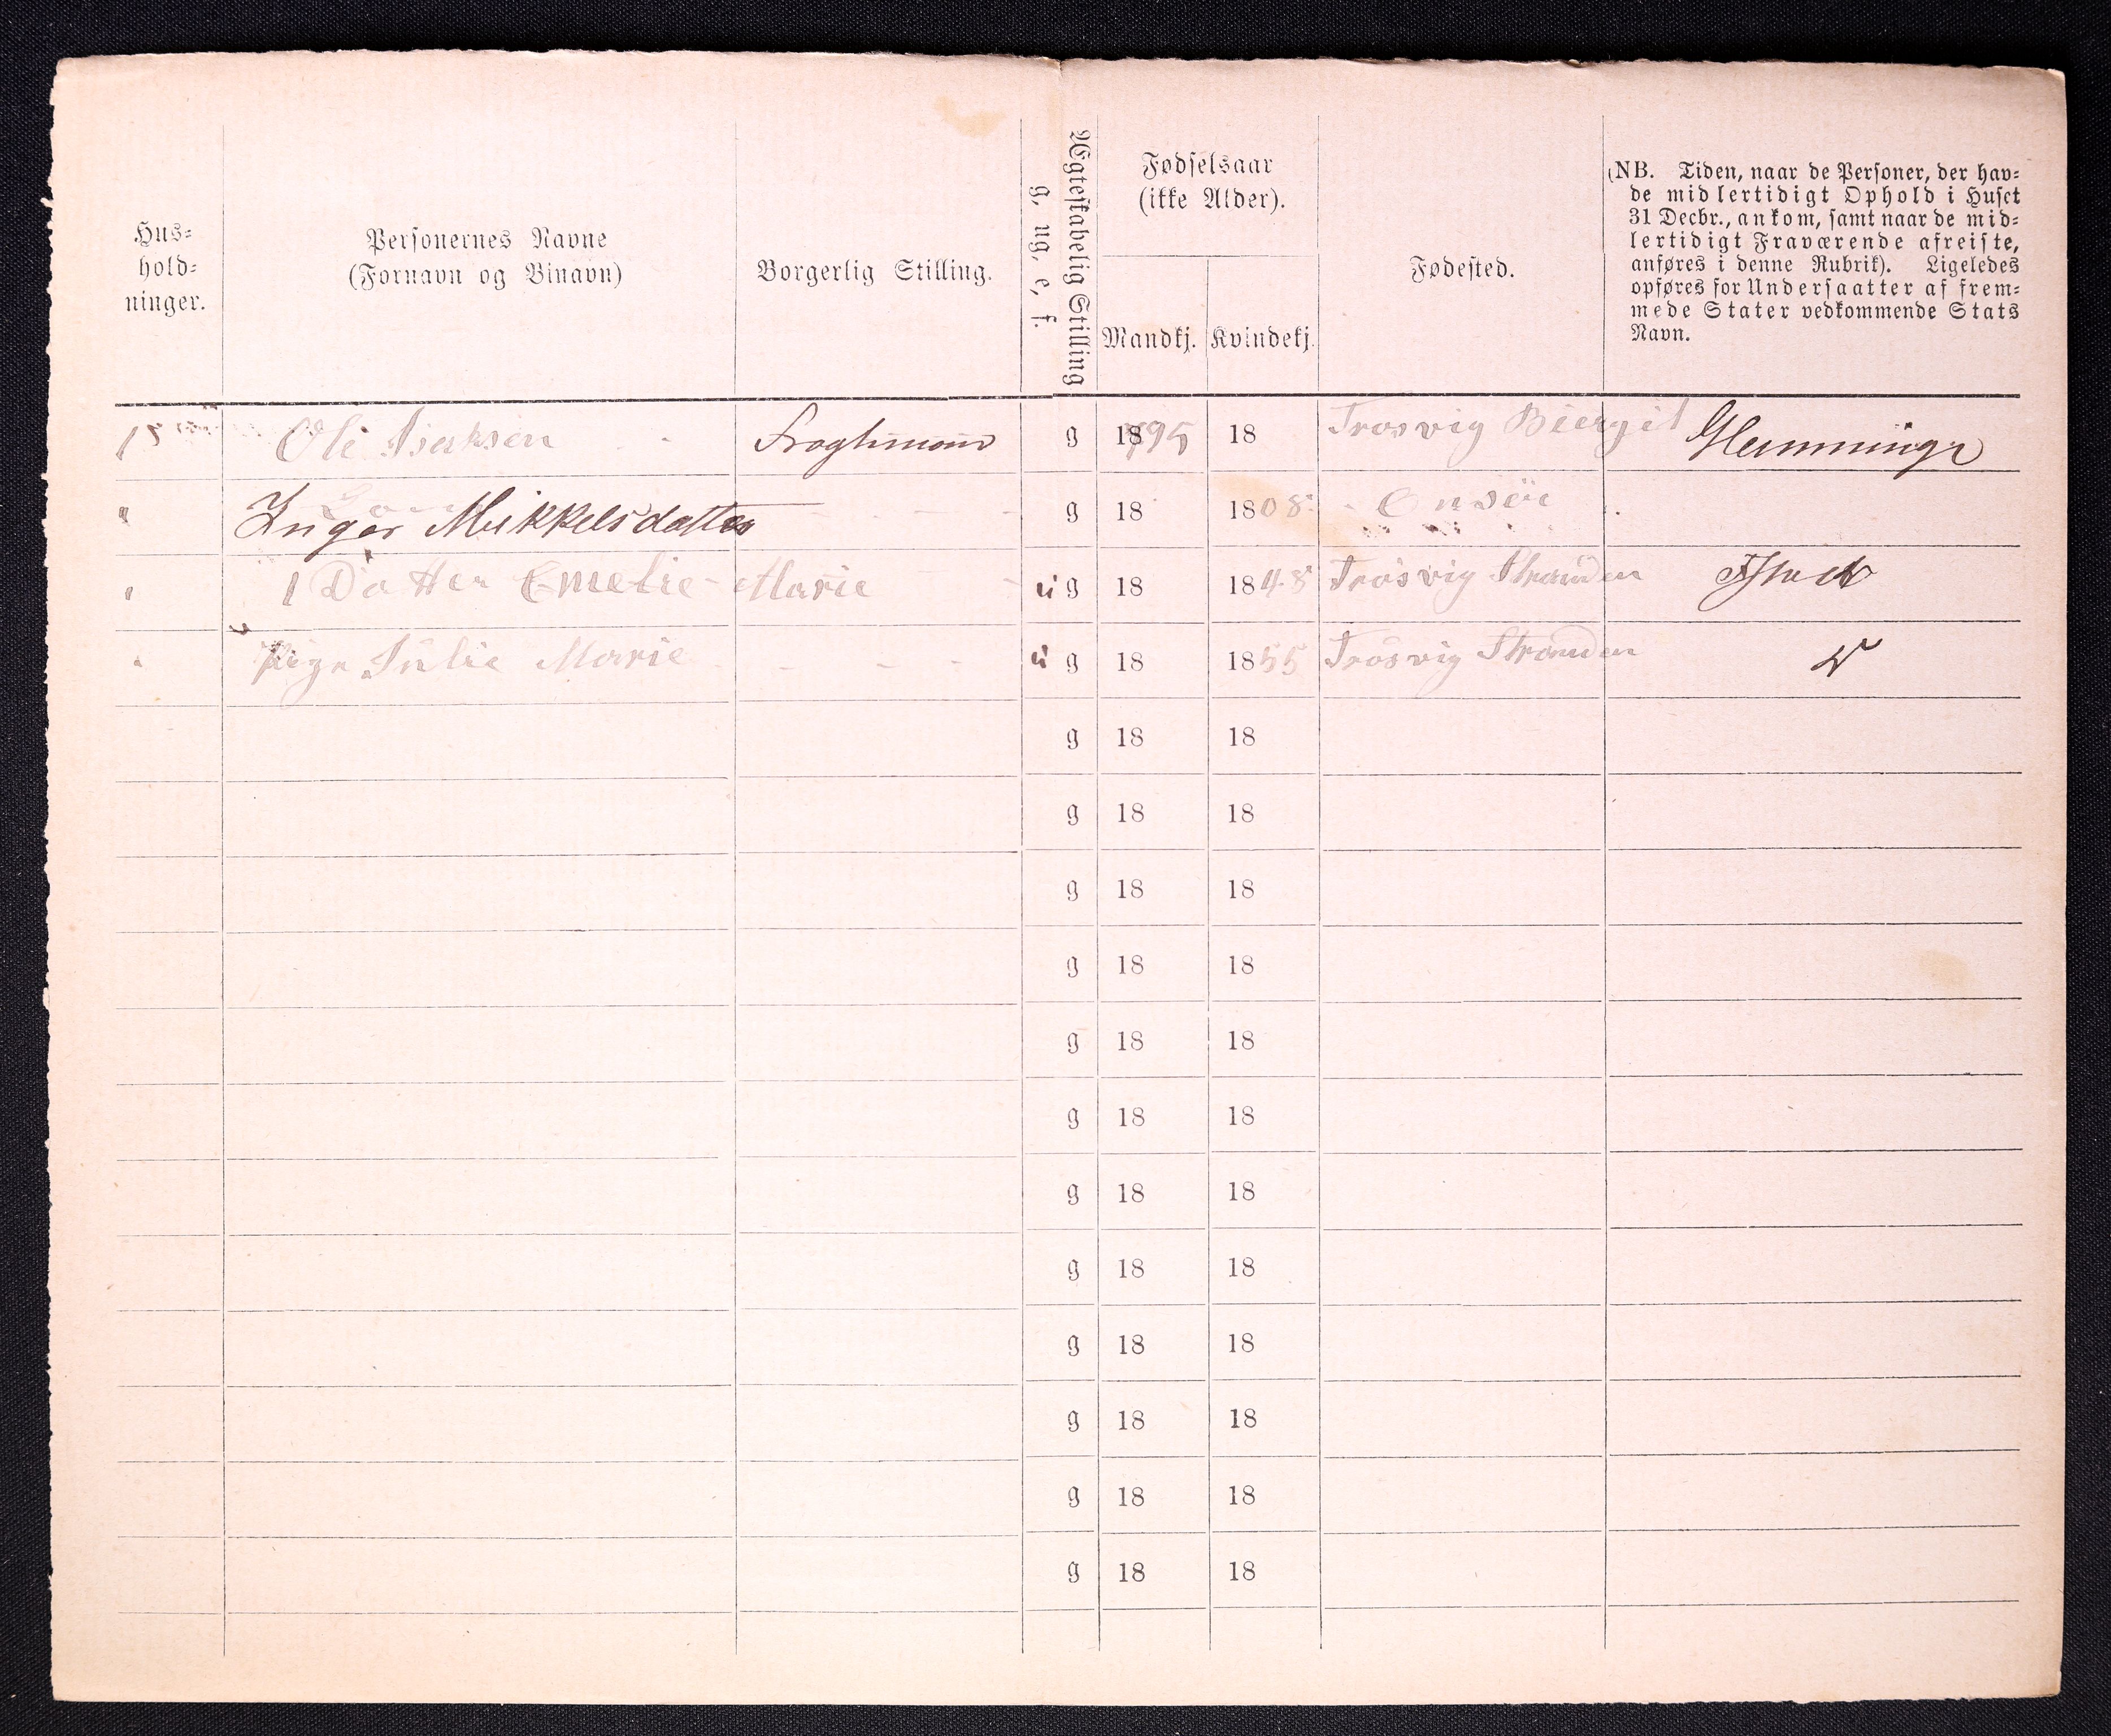 Hus-
hold-
ninger.
Personernes Navne
(Fornavn og Binavn)
Borgerlig Stilling.
Ægteskabelig Stilling
g, ug, e, f.
Fødselsaar
(ikke Alder).
Mandkj. Kvindekj.
Fødested.
(NB. Tiden, naar de Personer, der hav-
de midlertidigt Ophold i Huset
31 Decbr., ankom, samt naar de mid-
lertidigt Fraværende afreiste,
anføres i denne Rubrik). Ligeledes
opføres for Undersaatter af frem-
mede Stater vedkommende Stats
Navn.
Ole Isaksen g 1795 18 Trosvig
" Inger Mikkelsdatter g 18 1808 Onsöe
" 1 Datter Emelie Marie ug 18 1848 Trosvig Stranden
Pige Julie Marie ug 18 1855 Trosvig Stranden
g 18 18
g 18 18
g 18 18
g 18 18
g 18 18
g 18 18
g 18 18
g 18 18
g 18 18
g 18 18
g 18 18
g 18 18